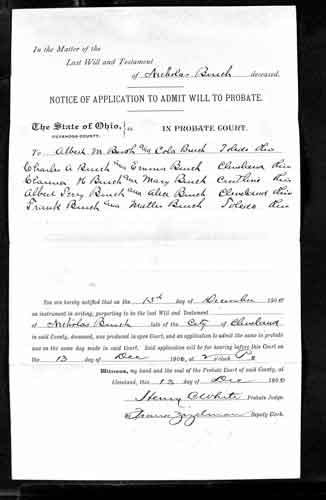 In the Matter of the
Last Will and Testament
of Nicholas Burch deceased.
NOTICE OF APPLICATION TO ADMIT WILL TO PROBATE.
The State of Ohio, } ss.
CUYAHOGA COUNTY.
IN PROBATE COURT.
To Albert M Burch and Cola Burch Toledo Ohio
Charles A Burch and Emma Burch Cleveland Ohio
H Burch and Mary Burch Ohio
Albert Burch and Alice Burch Cleveland Ohio
Frank Burch and Burch Toledo Ohio
You are hereby notified that on the 13th day of December 1900
an instrument in writing, purporting to be the last Will and Testament
of Nicholas Burch late of the City of Cleveland
in said County, deceased, was produced in open Court, and an application to admit the same to probate
was on the same day made in said Court. Said application will be for hearing before this Court on
the 13 day of Dec 1900, at 2 o'clock P.
Witness, my hand and the seal of the Probate Court of said County, at
Cleveland, this 13 day of Dec 1900
Henry C White Probate Judge.
Deputy Clerk.